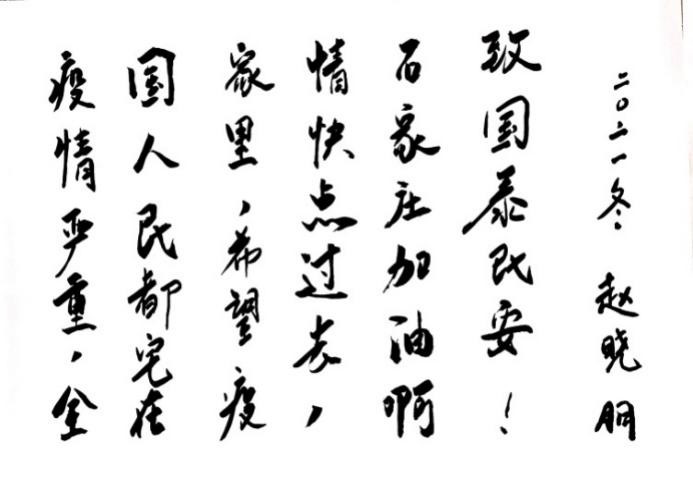 疫情严重，全
国人民都宅在
家里，希望疫
情快点过去，
石家庄加油啊
致国泰民安！
二〇二一冬 赵晓朋